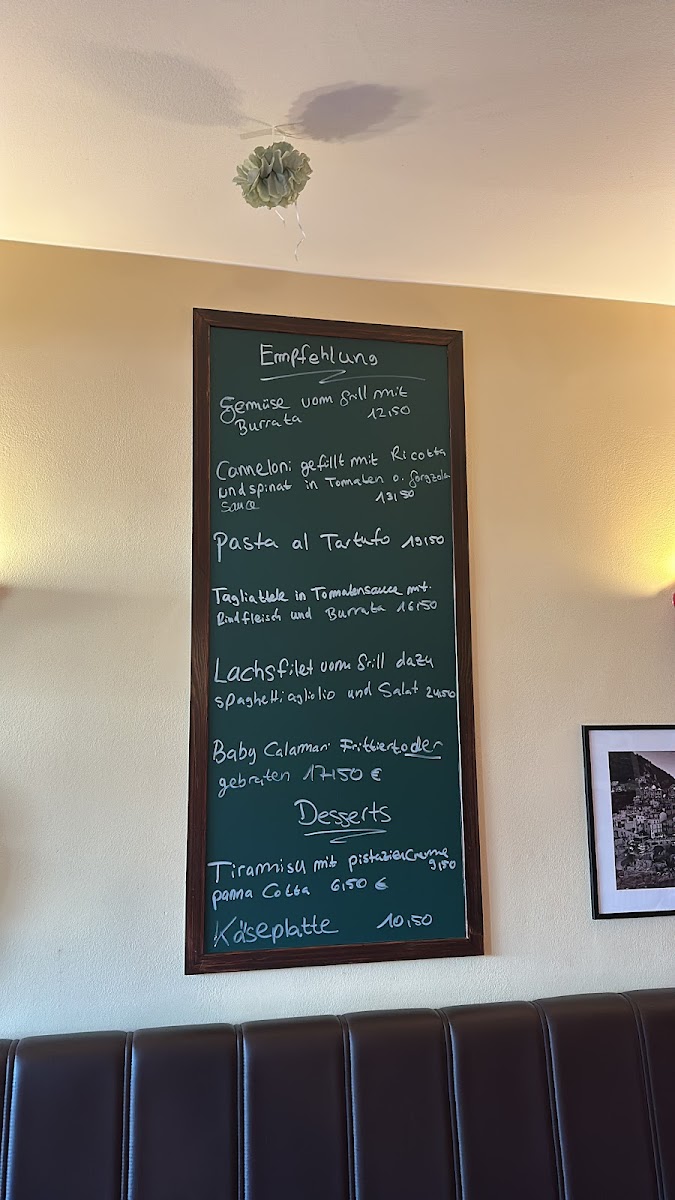 Empfehlung
Gemüse vom Grill mit
Burrata 12,50
Canneloni gefüllt mit Ricotta
und spinat in Tomaten o. Gorgzola
Sauce 13,50
Pasta al Tartufo 19,50
Tagliattele in Tomatensauce mit
Rindfleisch und Burrata 16,50
Lachsfilet vom Grill dazu
spaghetti aglio lio und Salat 24,50
Baby Calamari Frittiert oder
gebraten 17,50 €
Desserts
Tiramisu mit pistazien Creme
9,50
panna Cotta 6,50 €
Käseplatte 10,50